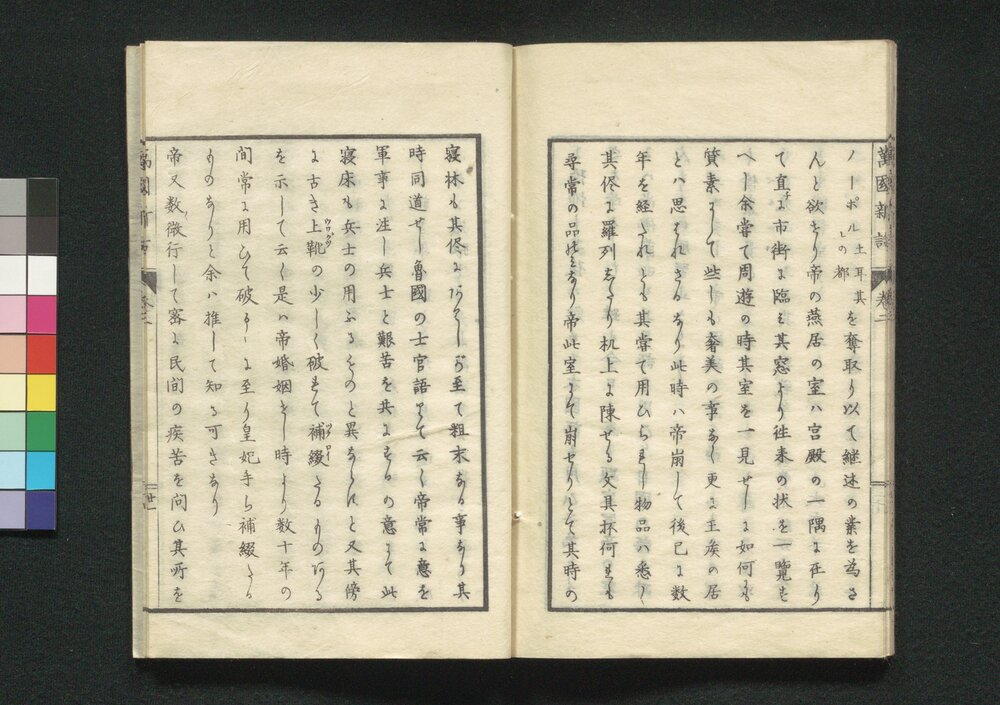 萬國新話 卷二
ノーポル土耳其との都を奪取り以て継述の業を為さ
んと欲せり帝の燕居の室ハ宮殿の一隅に在り
て直に市街に臨ミ其窓より往来の状を一覧す
へし余嘗て周遊の時其室を一見せしに如何にも
質素にして些しも奢美の事なし更に王矦の居
とハ思はれさるなり此時ハ帝崩して後已に数
年を経たれとも其嘗て用ひられし物品ハ悉く
其侭に羅列したり机上に陳せる文具抔何れも
尋常の品のミなり帝此室にて崩せりとて其時の
寝牀も其侭にあり至て粗末なる事なり其
時同道せし魯國の士官語りて云く帝常に意を
軍事に注し兵士と艱苦を共にするの意にて此
寝床も兵士の用ふるものと異ならすと又其傍
に古き上靴の少しく破れて補綴たるものある
を示して云く是ハ帝婚姻せし時より数十年の
間常に用ひて破るゝに至り皇妃手ら補綴たる
ものなりと余ハ推して知る可きなり
帝又数微行して密に民間の疾苦を問ひ其所を
萬國新話 卷二 廿一